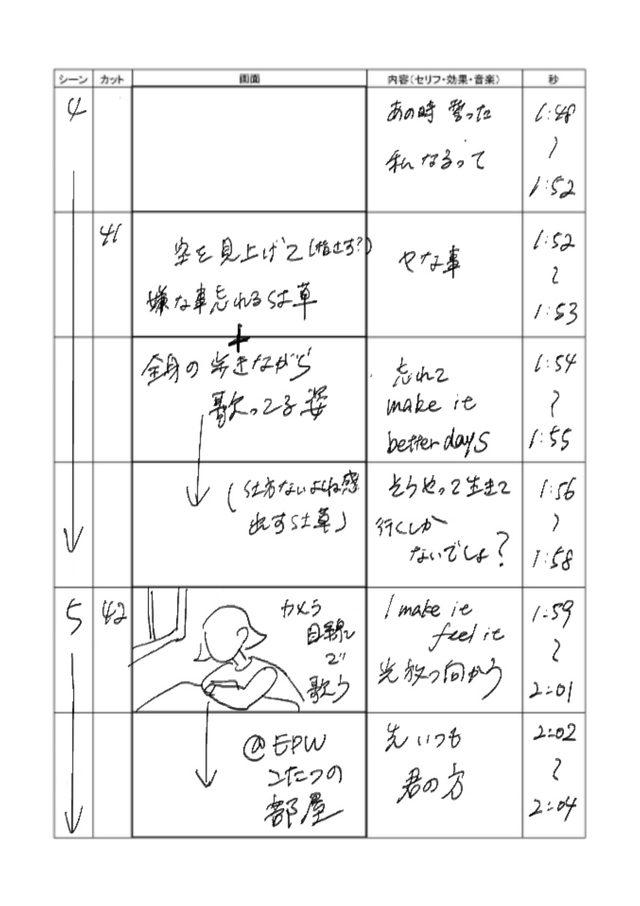 シーン カット 画面 内容(セリフ・効果・音楽) 秒
4
あの時 誓った
私 なるって
1:48
〜
1:52
41
空を見上げて(指さす?)
嫌な事忘れる仕草
やな事
1:52
〜
1:53
+
全身の歩きながら
歌ってる姿
忘れて
make it
better days
1:54
〜
1:55
(仕方ないよね感
出す仕草)
そうやって生きて
行くしか
ないでしょ?
1:56
〜
1:58
5
42
カメラ
目線
で
歌う
I make it
feel it
光放つ向かう
1:59
〜
2:01
@EPW
こたつの
部屋
先 いつも
君の方
2:02
〜
2:04